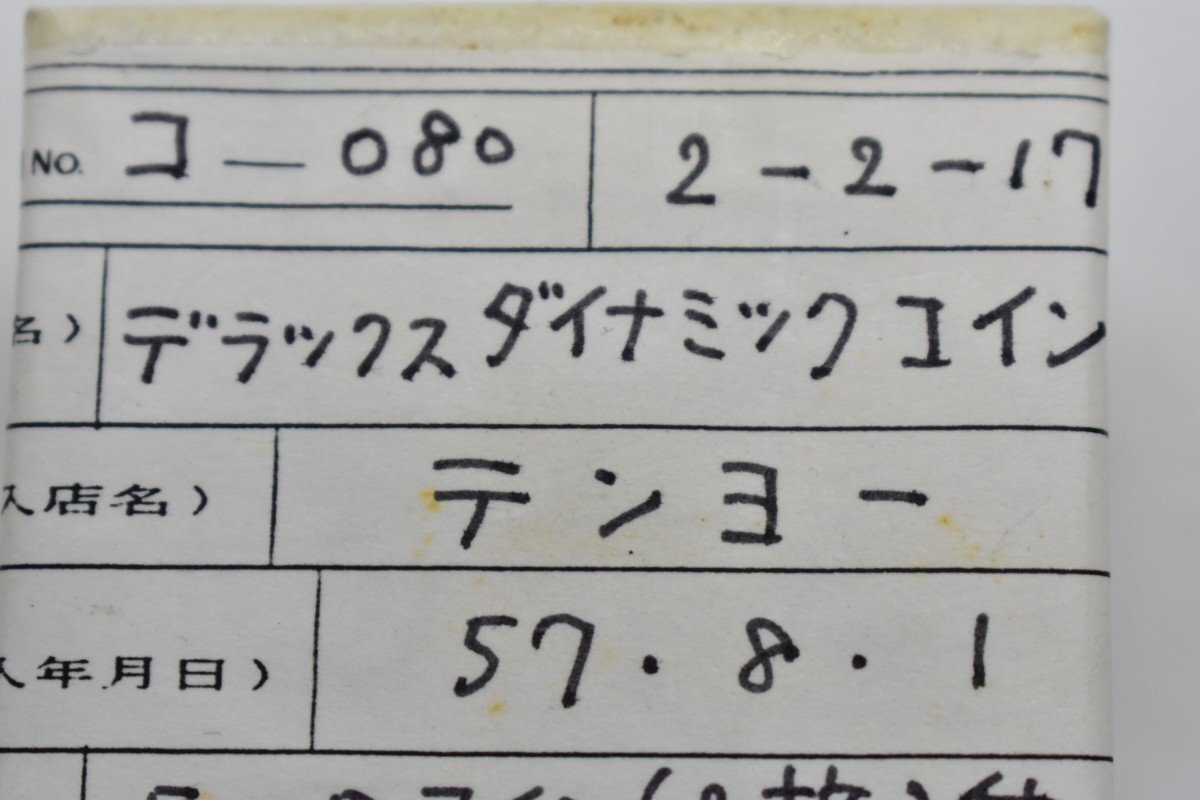 NO. コ－080 2－2－17
名) デラックスダイナミックコイン
入店名) テンヨー
入年月日) 57.8.1